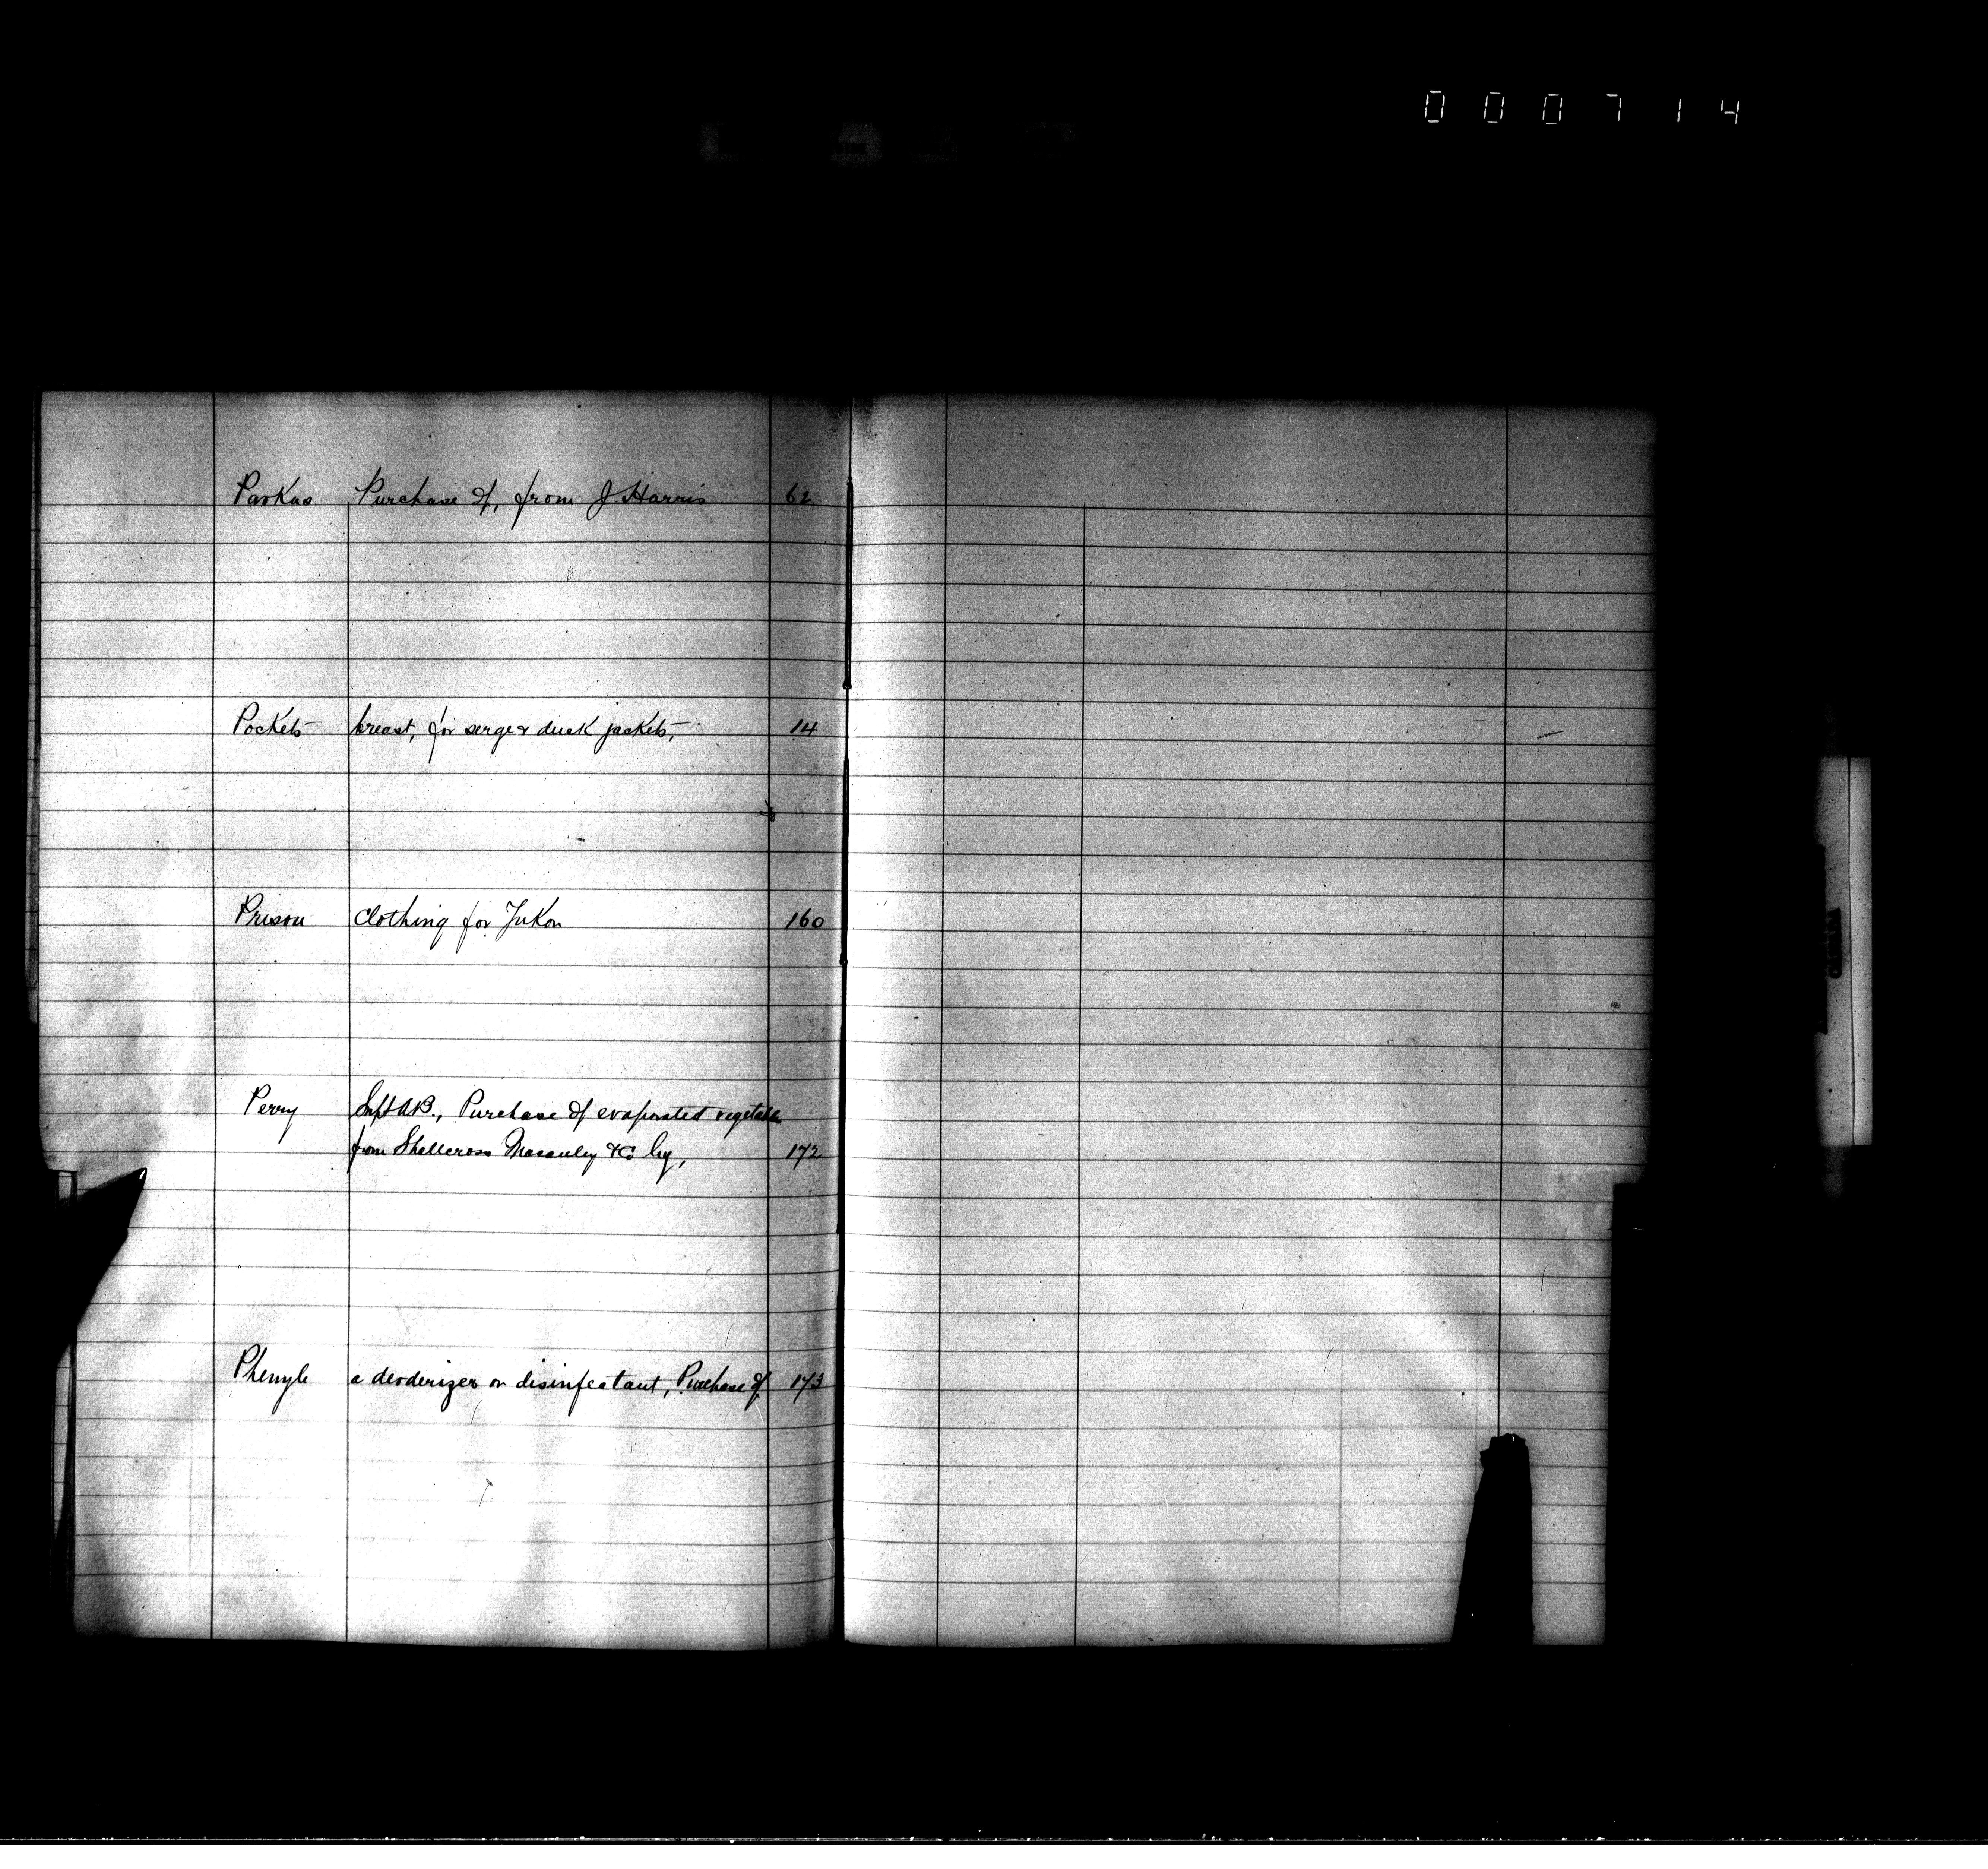 000714
Parkas Purchase of, from J. Harris 62
Pockets breast, for serge & duck jackets, 14
Prison Clothing for Yukon 160
Perry Supt A.B., Purchase of evaporated vegetables
from Shallcross Macauley & Co by, 172
Phenyle a deoderizer or disinfectant, Purchase of 173